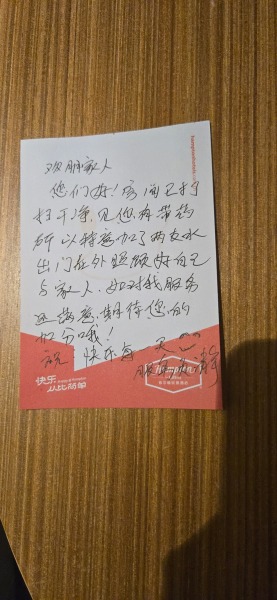 家人
您们好！房间已打
扫干净，见您有带药
所以特意加了两支水
出门在外照顾好自己
与家人，如对我服务
还满意，期待您的
好分哦！
祝 快乐每一天
Hampton
快乐
从此简单